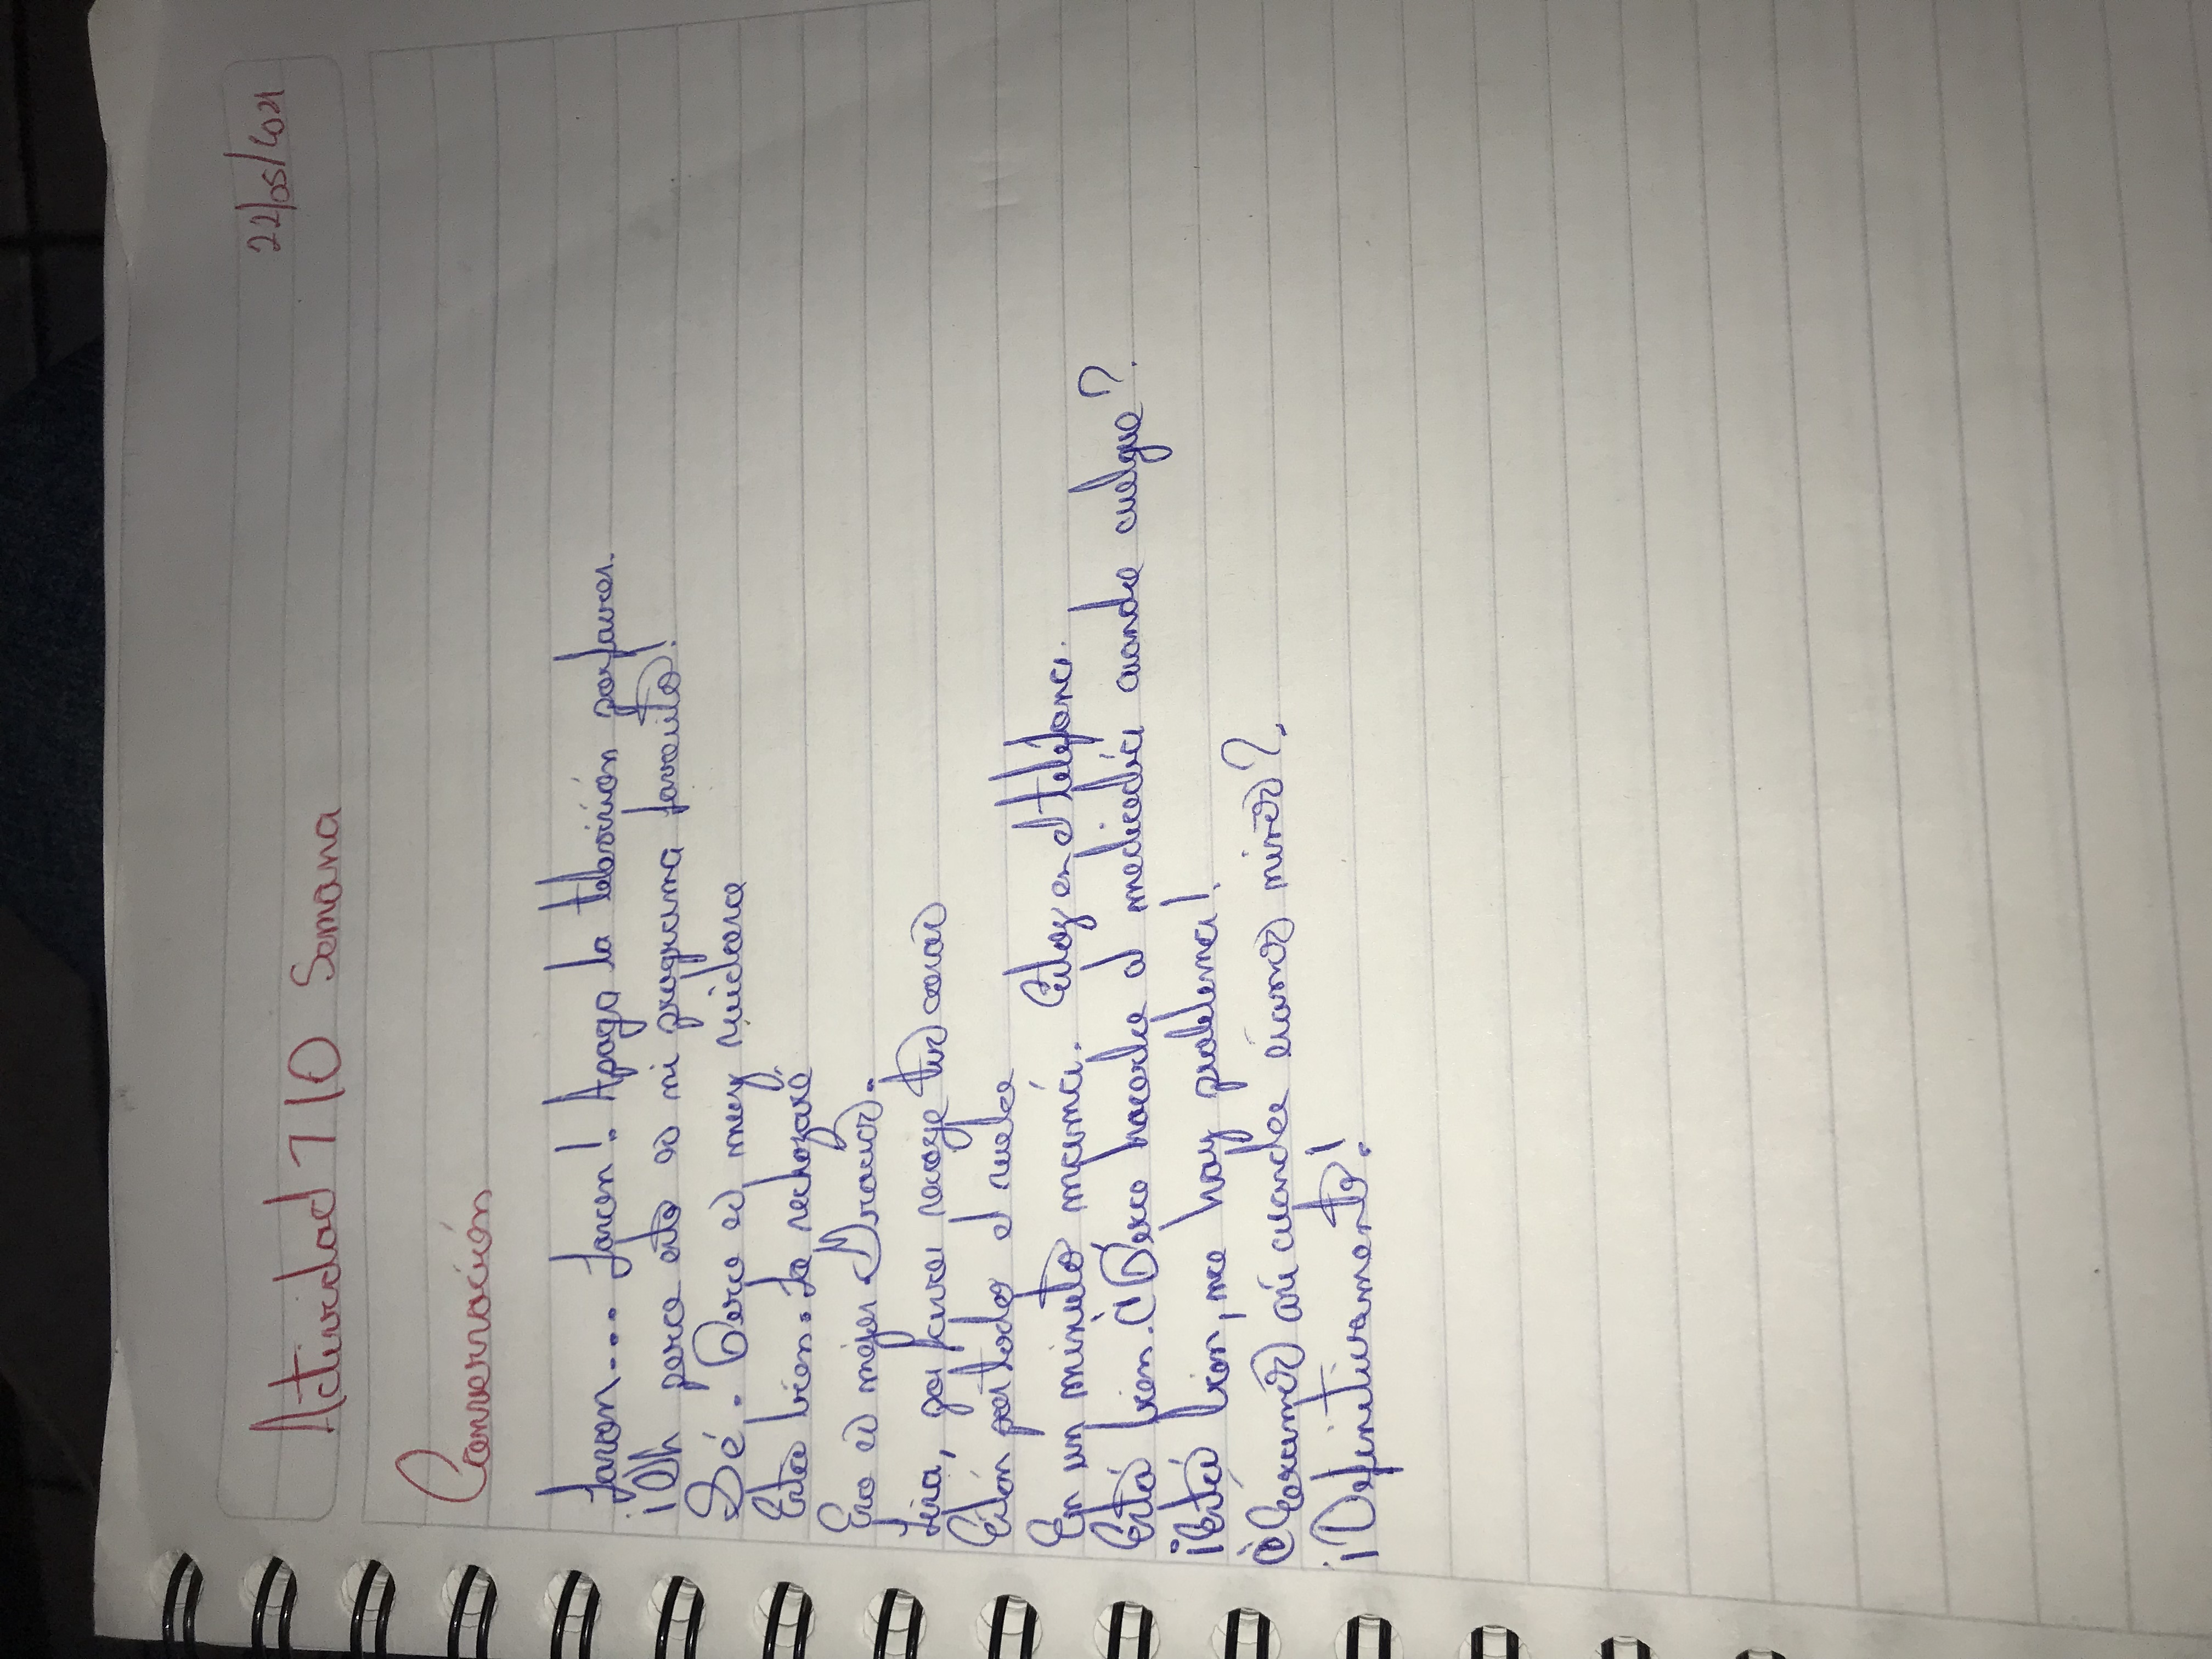 22/05/2021
Actividad 7 10 Semana
Conversación
Jason.... Jason! Apaga la televisión por favor.
¡Oh pero esto es mi programa favorito!
Sé. Pero es muy ruidoso
Esta bien. La rechazaré
Eso es mejor. Gracias.
Lisa, por favor recoge tus cosas
Están por todo el suelo
En un minuto mamá. Estoy en el teléfono.
Está bien. ¿Pero hacerlo el mediodía cuando cuelgue?.
¡Está bien, no hay problema!.
¿Eramos así cuando éramos niños?.
¡Definitivamente!.